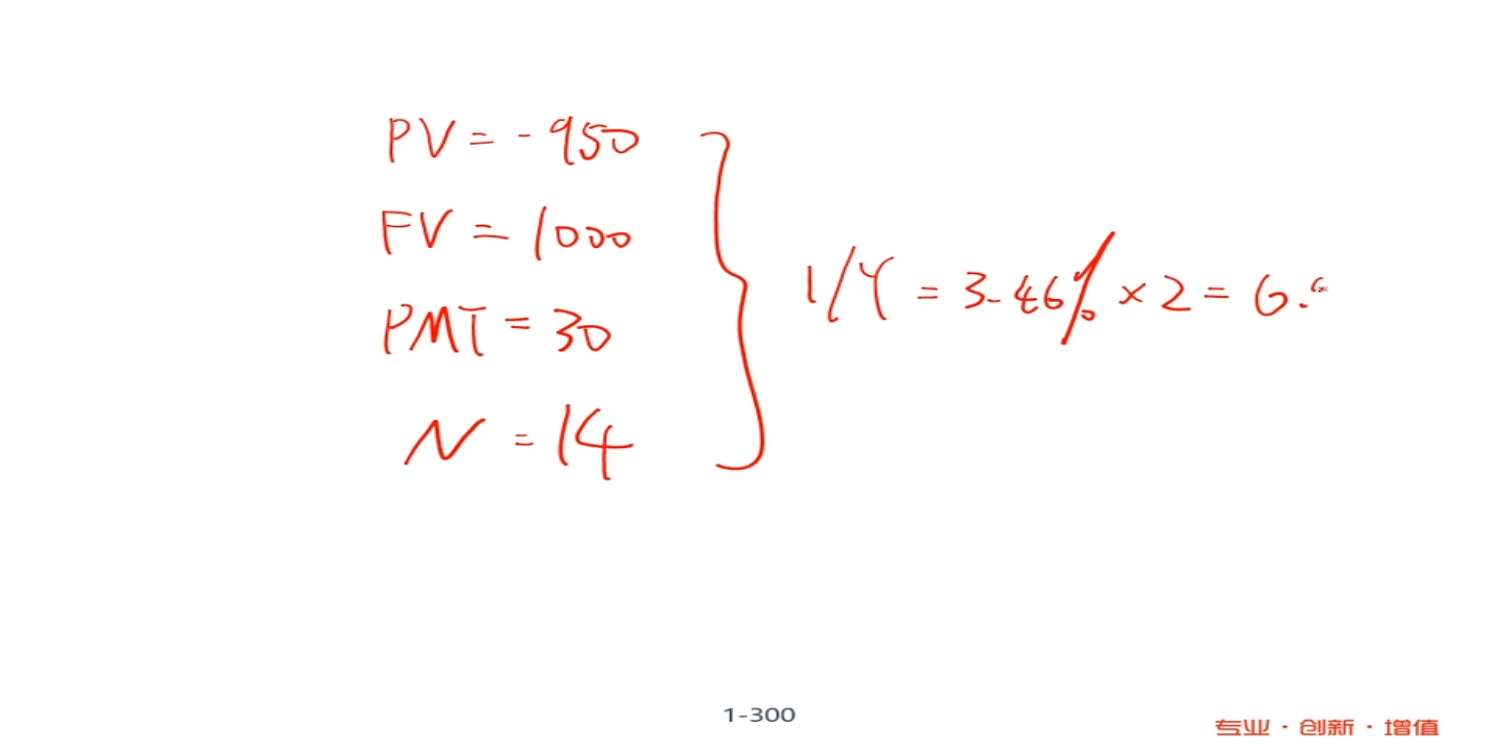 PV = -950
FV = 1000
PMT = 30
N = 14
I/Y = 3.46% × 2 = 6.
1-300
专业·创新·增值